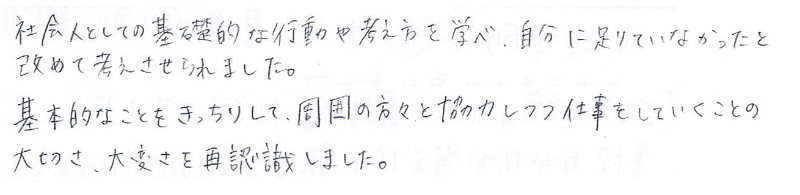 社会人としての基礎的な行動や考え方を学べ、自分に足りていなかったと
改めて考えさせられました。
基本的なことをきっちりして、周囲の方々と協力しつつ仕事をしていくことの
大切さ、大変さを再認識しました。